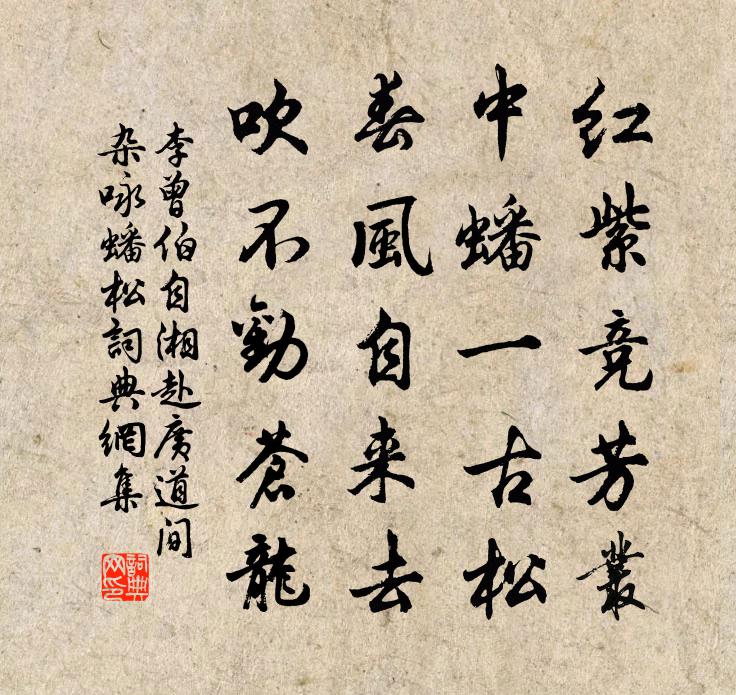 红紫竞芳叢
中蟠一古松
春風自来去
吹不動蒼龍
李曾伯自湘赴廣道间
杂咏蟠松詞典網集
詞典
网印